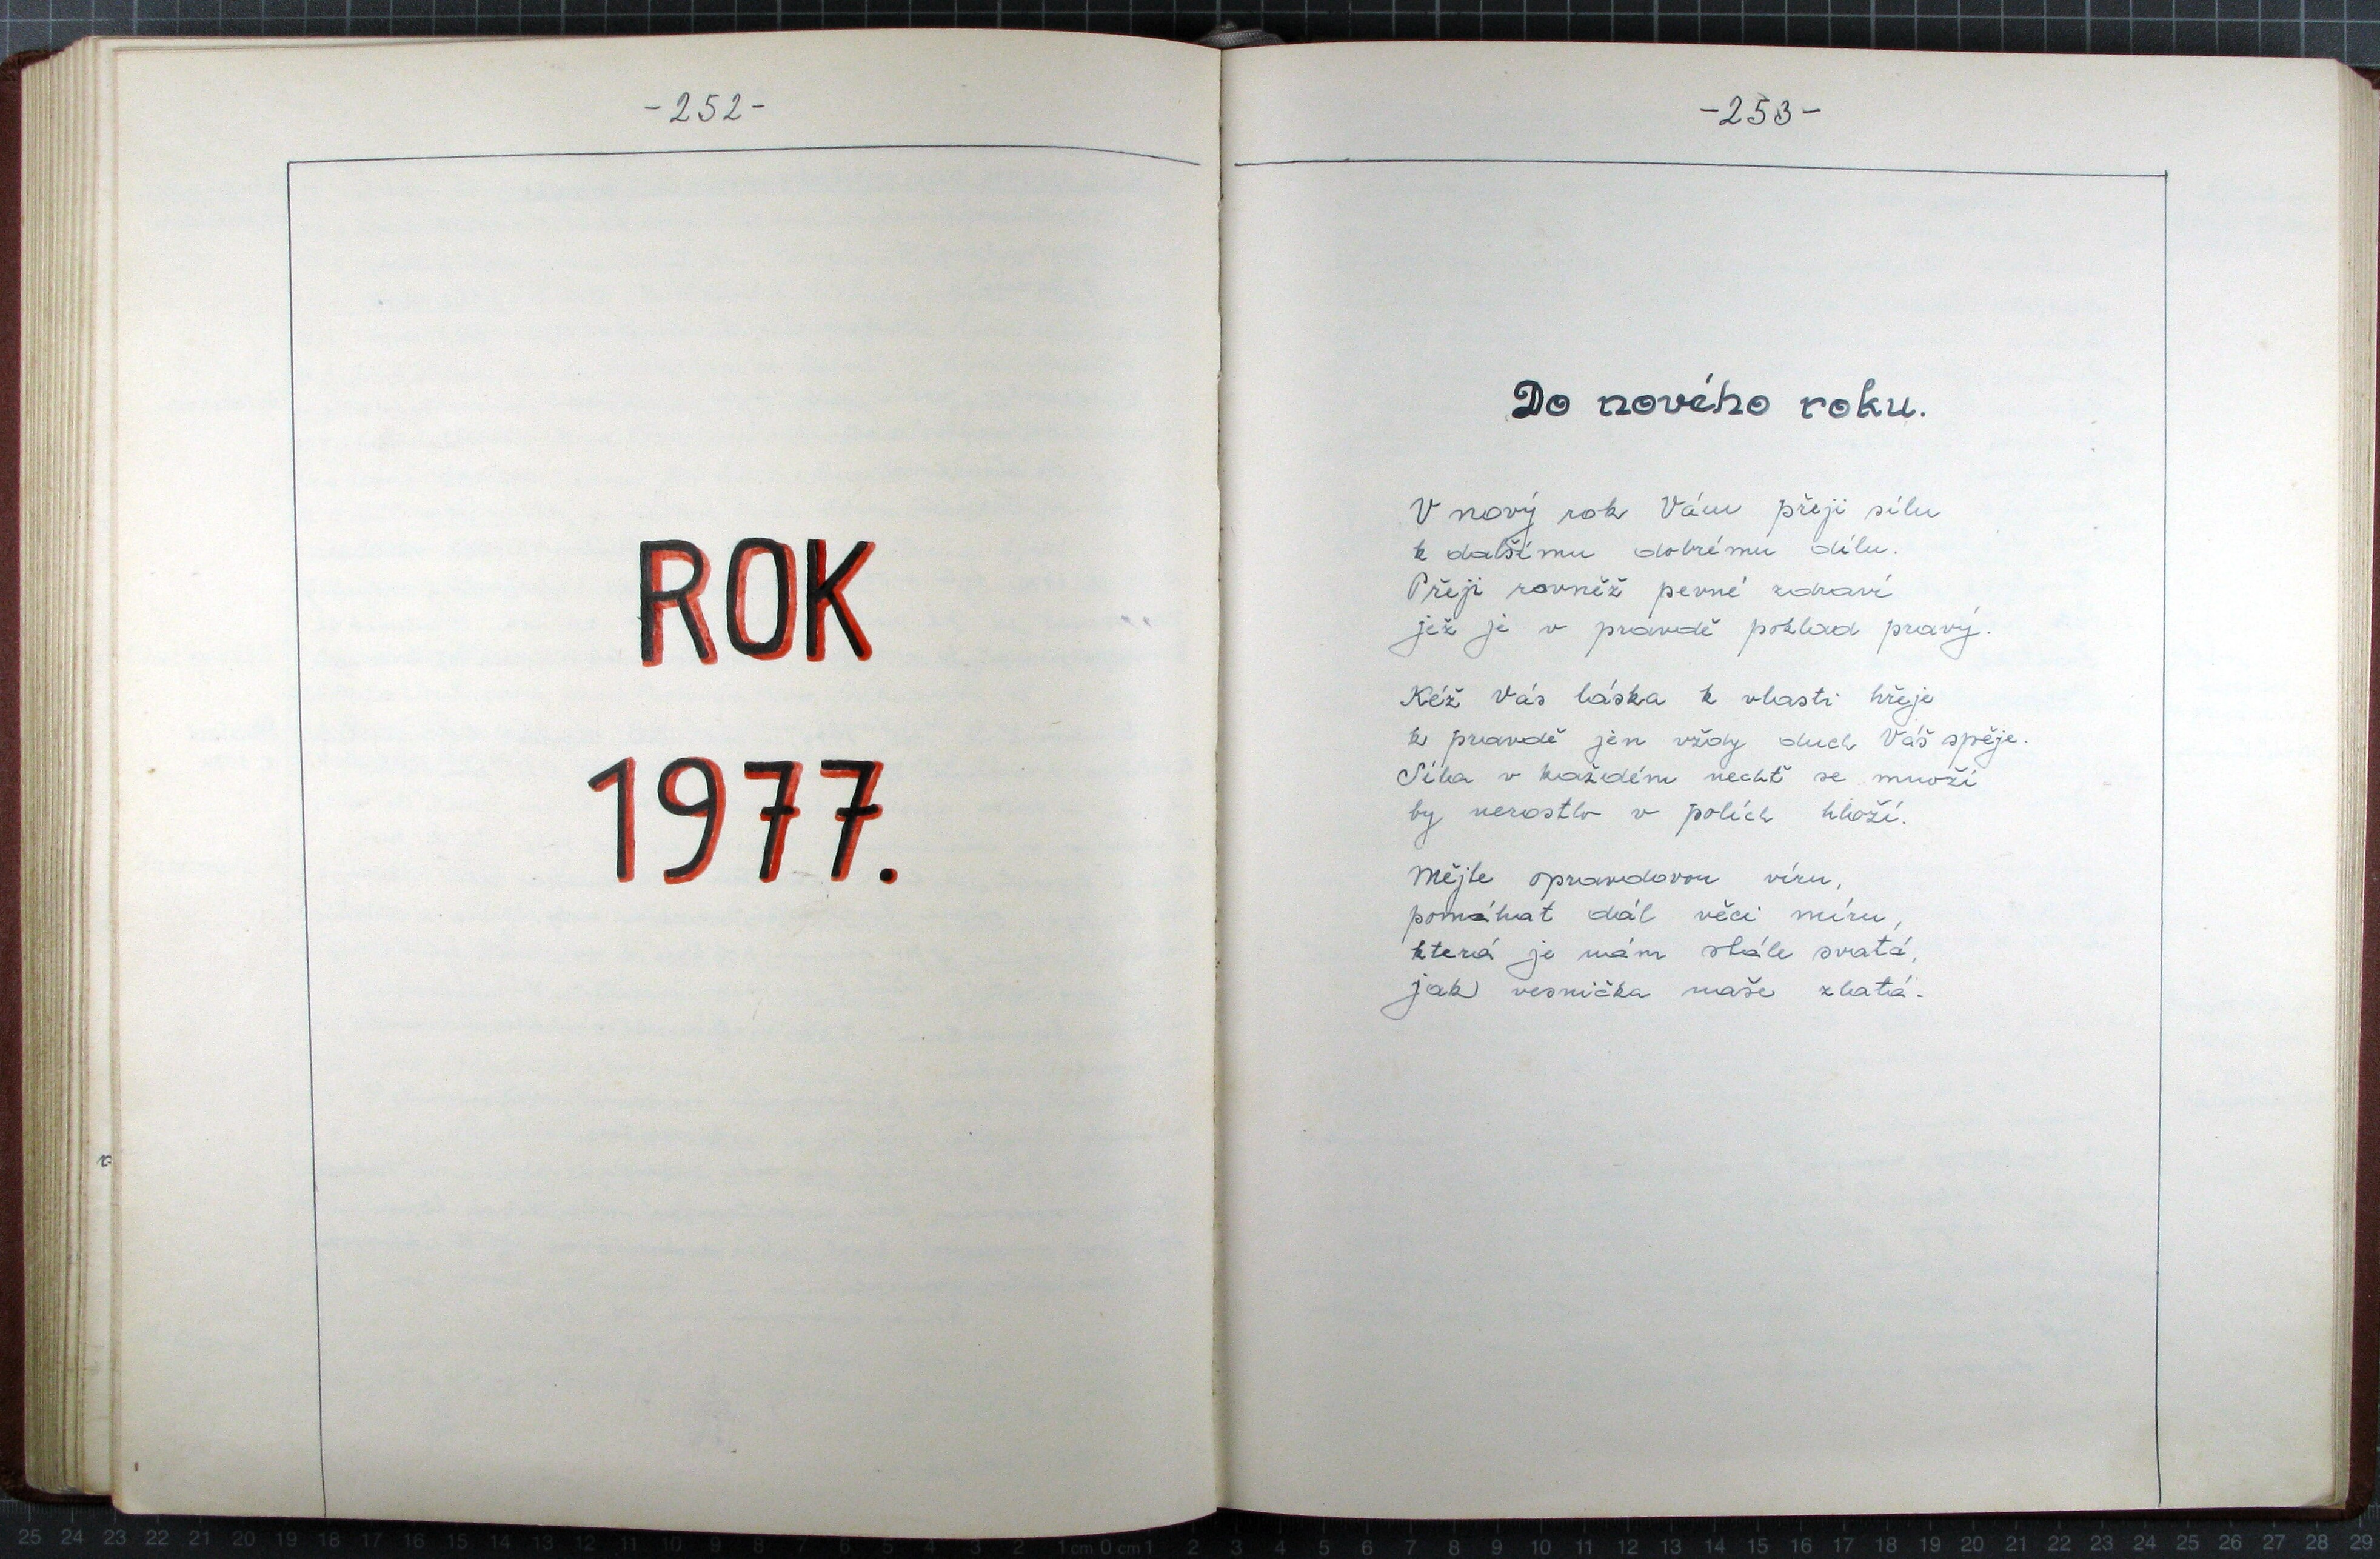 -252-
ROK
1977.
-253-
Do nového roku.
V nový rok Vám přeji sílu
k dalšímu dobrému dílu.
Přeji rovněž pevné zdraví
jež je v pravdě poklad pravý.
Kéž Vás láska k vlasti hřeje
k pravdě jen vždy duch Váš spěje.
Síla v každém nechť se množí
by nerostlo v polích hloží.
Mějte opravdovou víru,
pomáhat dál věci míru,
která je nám stále svatá,
jak vesnička naše zlatá.
25 24 23 22 21 20 19 18 17 16 15 14 13 12 11 10 9 8 7 6 5 4 3 2 1 cm 0 cm 1 2 3 4 5 6 7 8 9 10 11 12 13 14 15 16 17 18 19 20 21 22 23 24 25 26 27 28 29